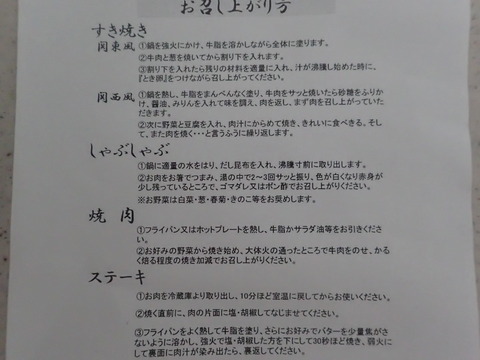 お召し上がり方
すき焼き
関東風 ①鍋を強火にかけ、牛脂を溶かしながら全体に塗ります。
②牛肉と葱を焼いてから割り下を入れます。
③割り下を入れたら残りの材料を適量に入れ、汁が沸騰し始めた時に、
『とき卵』をつけながら召し上がってください。
関西風 ①鍋を熱し、牛脂をまんべんなく塗り、牛肉をサッと焼いたら砂糖をふりか
け、醤油、みりんを入れて味を調え、肉を返し、まず肉を召し上がっていた
だきます。
②次に野菜と豆腐を入れ、肉汁にからめて焼き、きれいに食べきる、そし
て、また肉を焼く・・・と言うふうに繰り返します。
しゃぶしゃぶ
①鍋に適量の水をはり、だし昆布を入れ、沸騰寸前に取り出します。
②お肉をお箸でつまみ、湯の中で2～3回サッと振り、色が白くなり赤身が
少し残っているところで、ゴマダレ又はポン酢でお召し上がりください。
※お野菜は白菜・葱・春菊・きのこ等をお奨めします。
焼肉
①フライパン又はホットプレートを熱し、牛脂かサラダ油等をお引きくださ
い。
②お好みの野菜から焼き始め、大体火の通ったところで牛肉をのせ、かる
く焙る程度の焼き加減でお召し上がりください。
ステーキ
①お肉を冷蔵庫より取り出し、10分ほど室温に戻してからお使いください。
②焼く直前に、肉の片面に塩・胡椒してなじませてください。
③フライパンをよく熱して牛脂を塗り、さらにお好みでバターを少量焦がさ
ないように溶かし、強火で塩・胡椒した方を下にして30秒ほど焼き、弱火に
して裏面に肉汁が染み出たら、裏返してください。